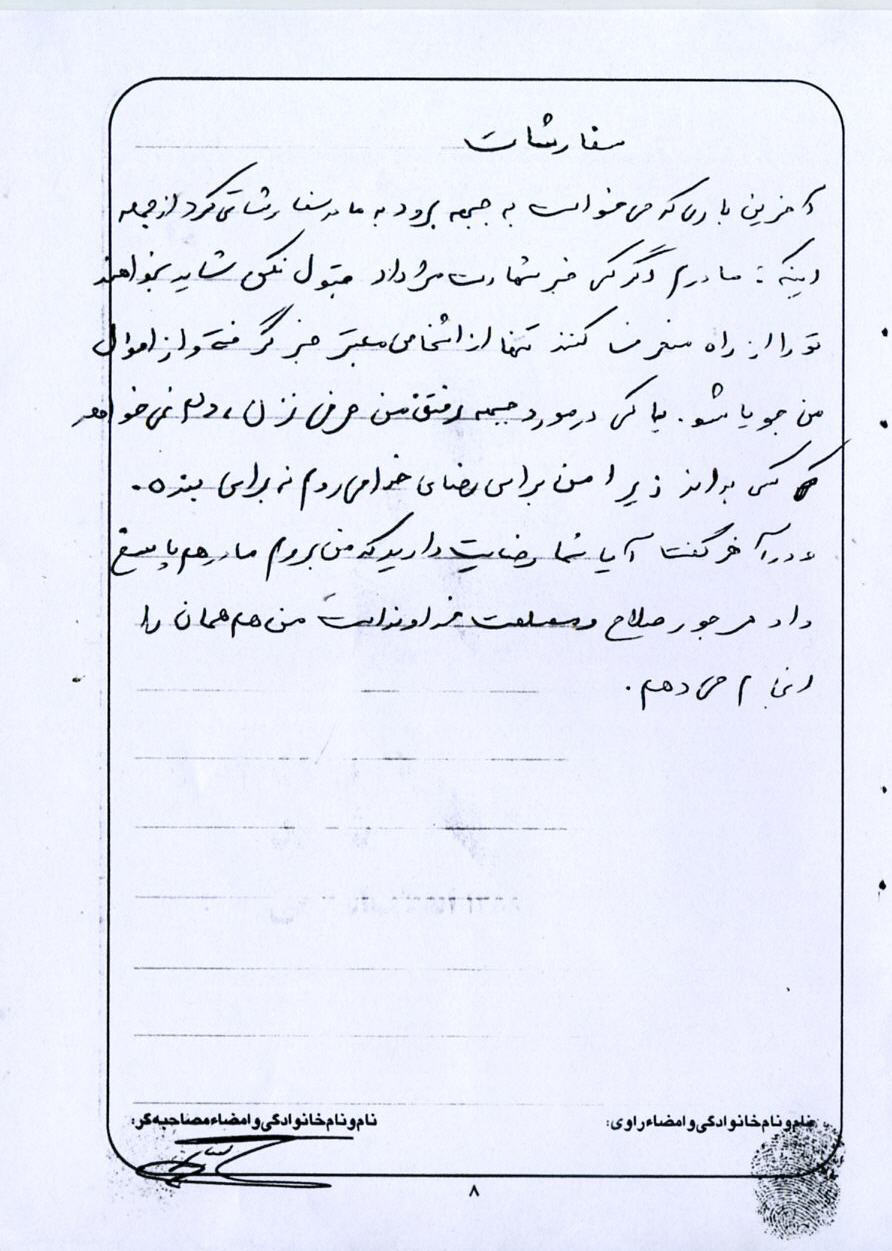 سفارشات
آخرین باری که می خواست به جبهه برود به مادر سفارشاتی کرد از جمله
اینکه : مادرم اگر کسی خبر شهادت مرا داد قبول نکن شاید بخواهند
تو را از راه منحرف کنند تنها از اشخاص معتبر خبر گرفته و از احوال
من جویا شو. با کسی در مورد جبهه رفتن من حرفی نزن ، دلم نمی خواهد
کسی بداند زیرا من برای رضای خدا می روم نه برای بنده .
و در آخر گفت آیا شما رضایت دارید که من بروم مادرم پاسخ
داد هر جور صلاح و مصلحت خداوند است من هم همان را
انجام می دهم .
نام و نام خانوادگی و امضاء راوی:
نام و نام خانوادگی و امضاء مصاحبه گر:
۸